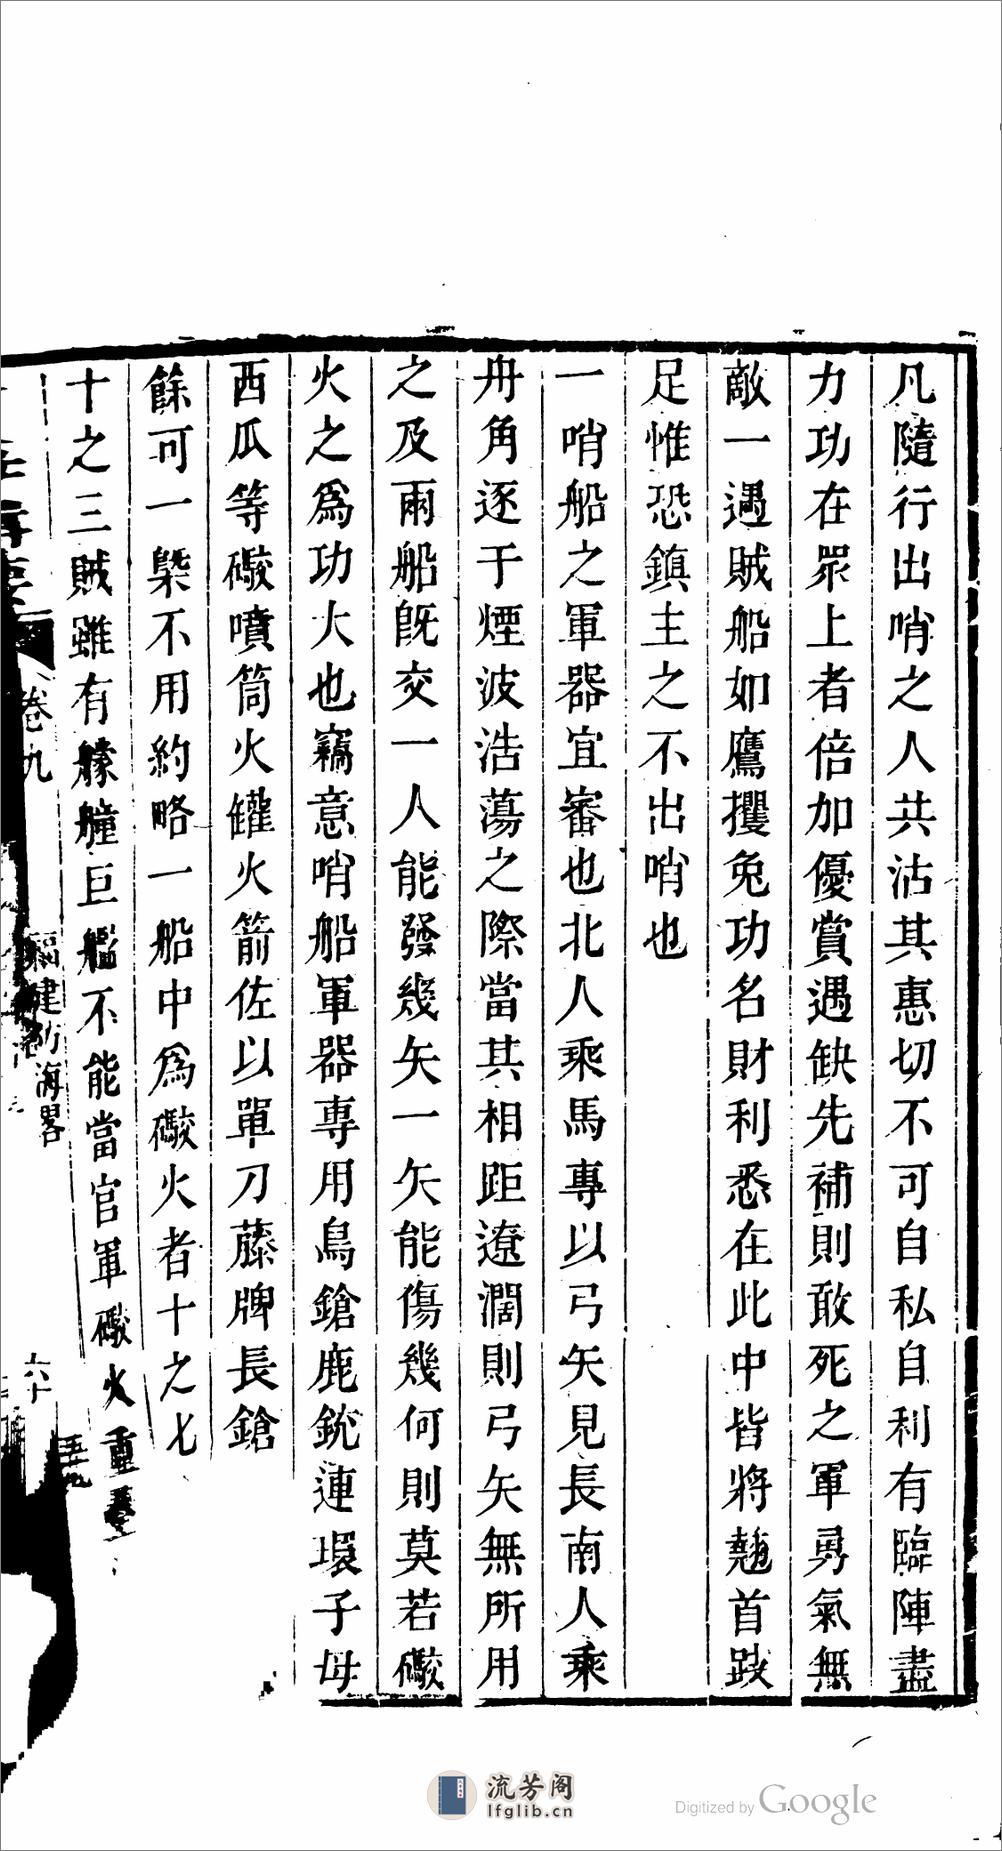 凡隨行出哨之人共沾其惠切不可自私自利有臨陣盡
力功在眾上者倍加優賞遇缺先補則敢死之軍勇氣無
敵一遇賊船如鷹攫兔功名財利悉在此中皆將翹首跂
足惟恐鎮主之不出哨也
一哨船之軍器宜審也北人乘馬專以弓矢見長南人乘
舟角逐于煙波浩蕩之際當其相距遼濶則弓矢無所用
之及兩船旣交一人能發幾矢一矢能傷幾何則莫若礮
火之爲功大也竊意哨船軍器專用鳥鎗鹿銃連環子母
西瓜等礮噴筒火罐火箭佐以單刀藤牌長鎗
餘可一槩不用約略一船中爲礮火者十之七
十之三賊雖有艨艟巨艦不能當官軍礮火重
卷九
福建防海畧
六十
流芳阁
lfglib.cn
Digitized by Google